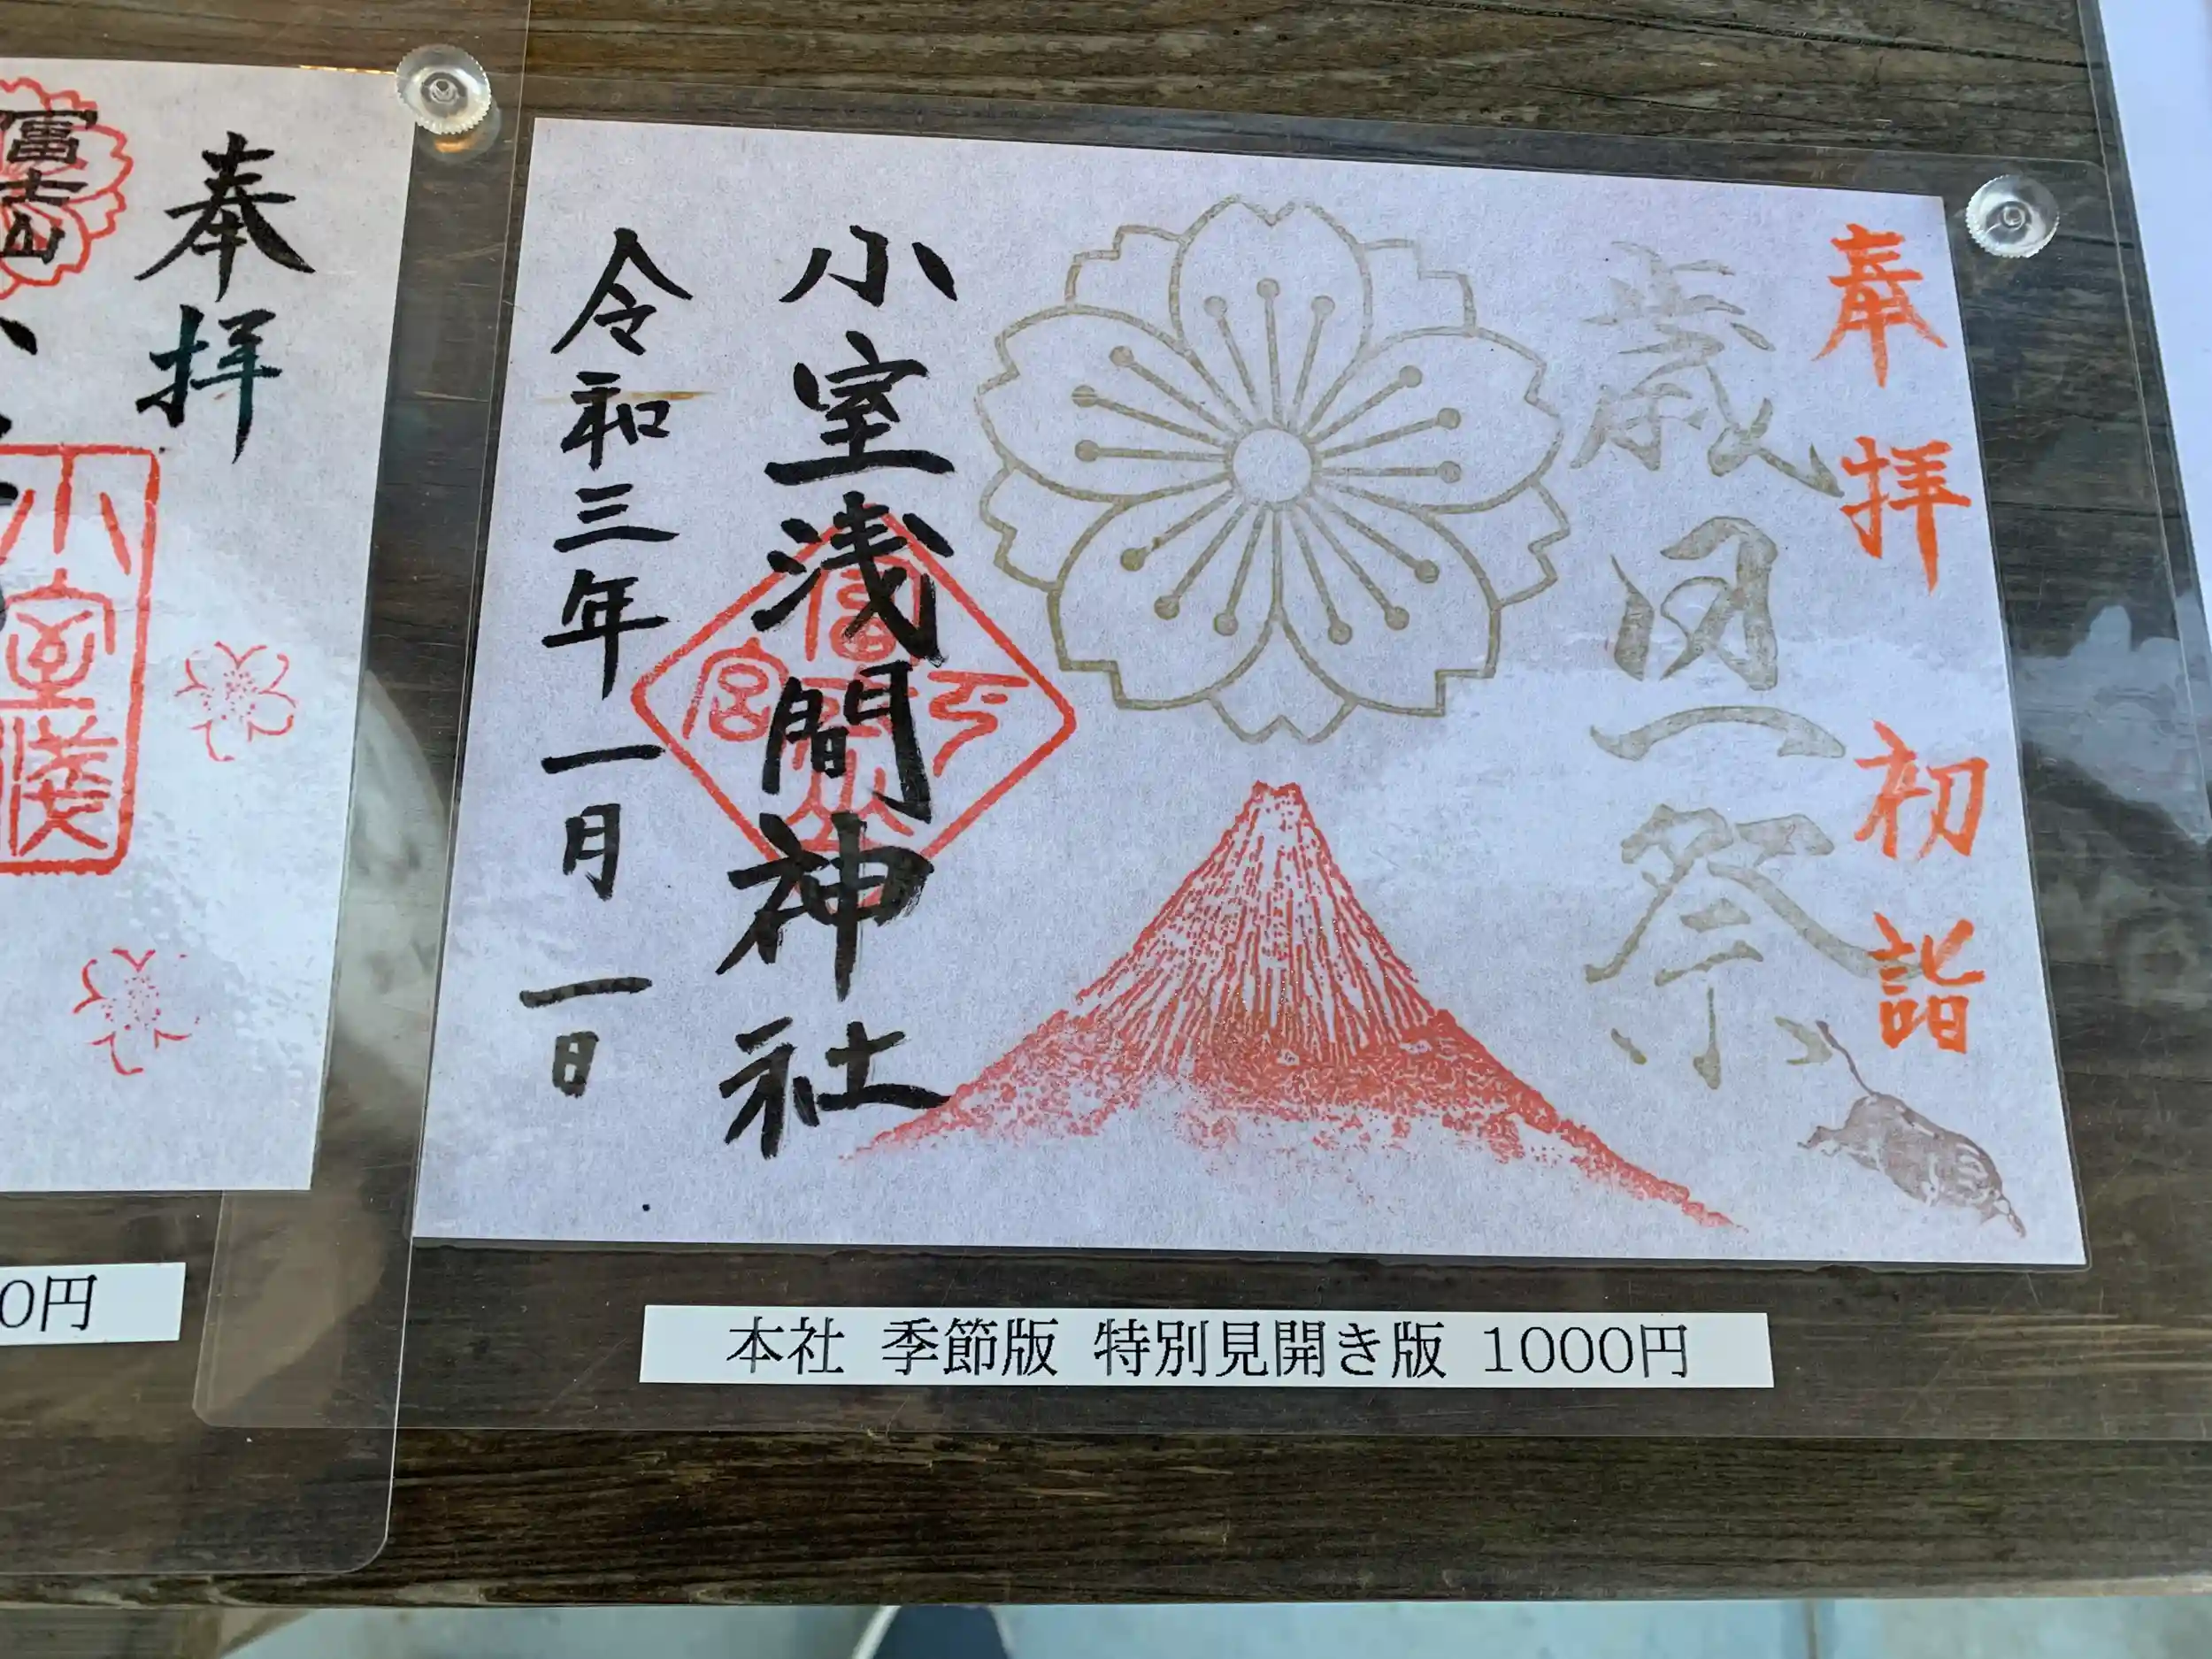 奉拝 初詣
歳旦祭
小室浅間神社
令和三年一月一日
富士山
下宮
本社 季節版 特別見開き版 1000円
奉拝
富士山
小室浅
0円